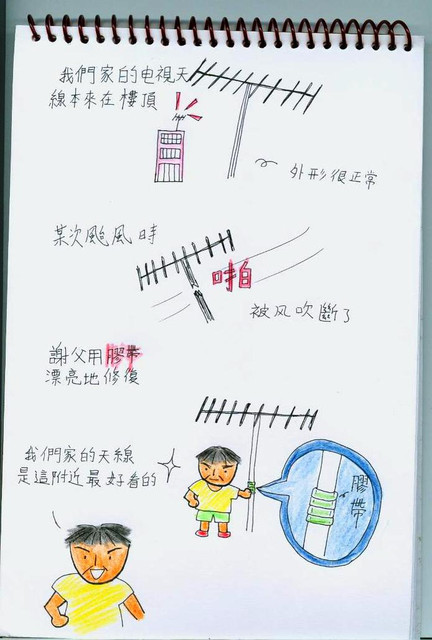 我們家的电視天
線本來在樓頂
外形很正常
某次颱風時
啪
被风吹斷了
謝父用膠帶
漂亮地修復
我們家的天線
是這附近最好看的
膠帶